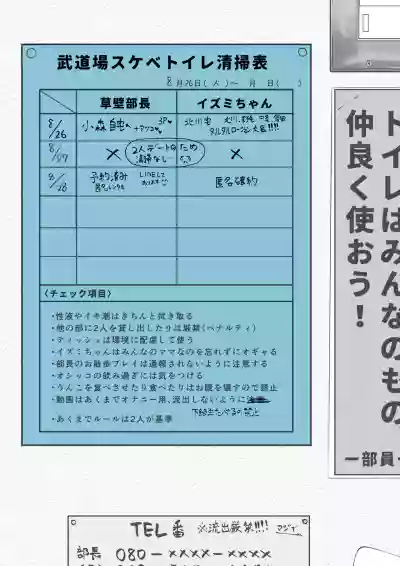 武道場スケベトイレ清掃表
8月26日(火)～ 月 日( )
草壁部長 イズミちゃん
8/26
8/27 × 2人デートのため清掃なし ×
8/28 予約済み 匿名確約
〈チェック項目〉
・性液やイキ潮はきちんと拭き取る
・他の部に2人を貸し出したりは厳禁(ペナルティ)
・ティッシュは環境に配慮して使う
・イズミちゃんはみんなのママなのを忘れずにオギャる
・部長のお散歩プレイは通報されないように注意する
・オシッコの飲み過ぎには気をつける
・うんこを食べさせたり食べたりはお腹を壊すので禁止
・動画はあくまでオナニー用、流出しないように
・あくまでルールは2人が基準
トイレはみんなのもの
仲良く使おう！
ー部員
TEL番 ※流出厳禁!!!! マジで
部長 080-××××-××××